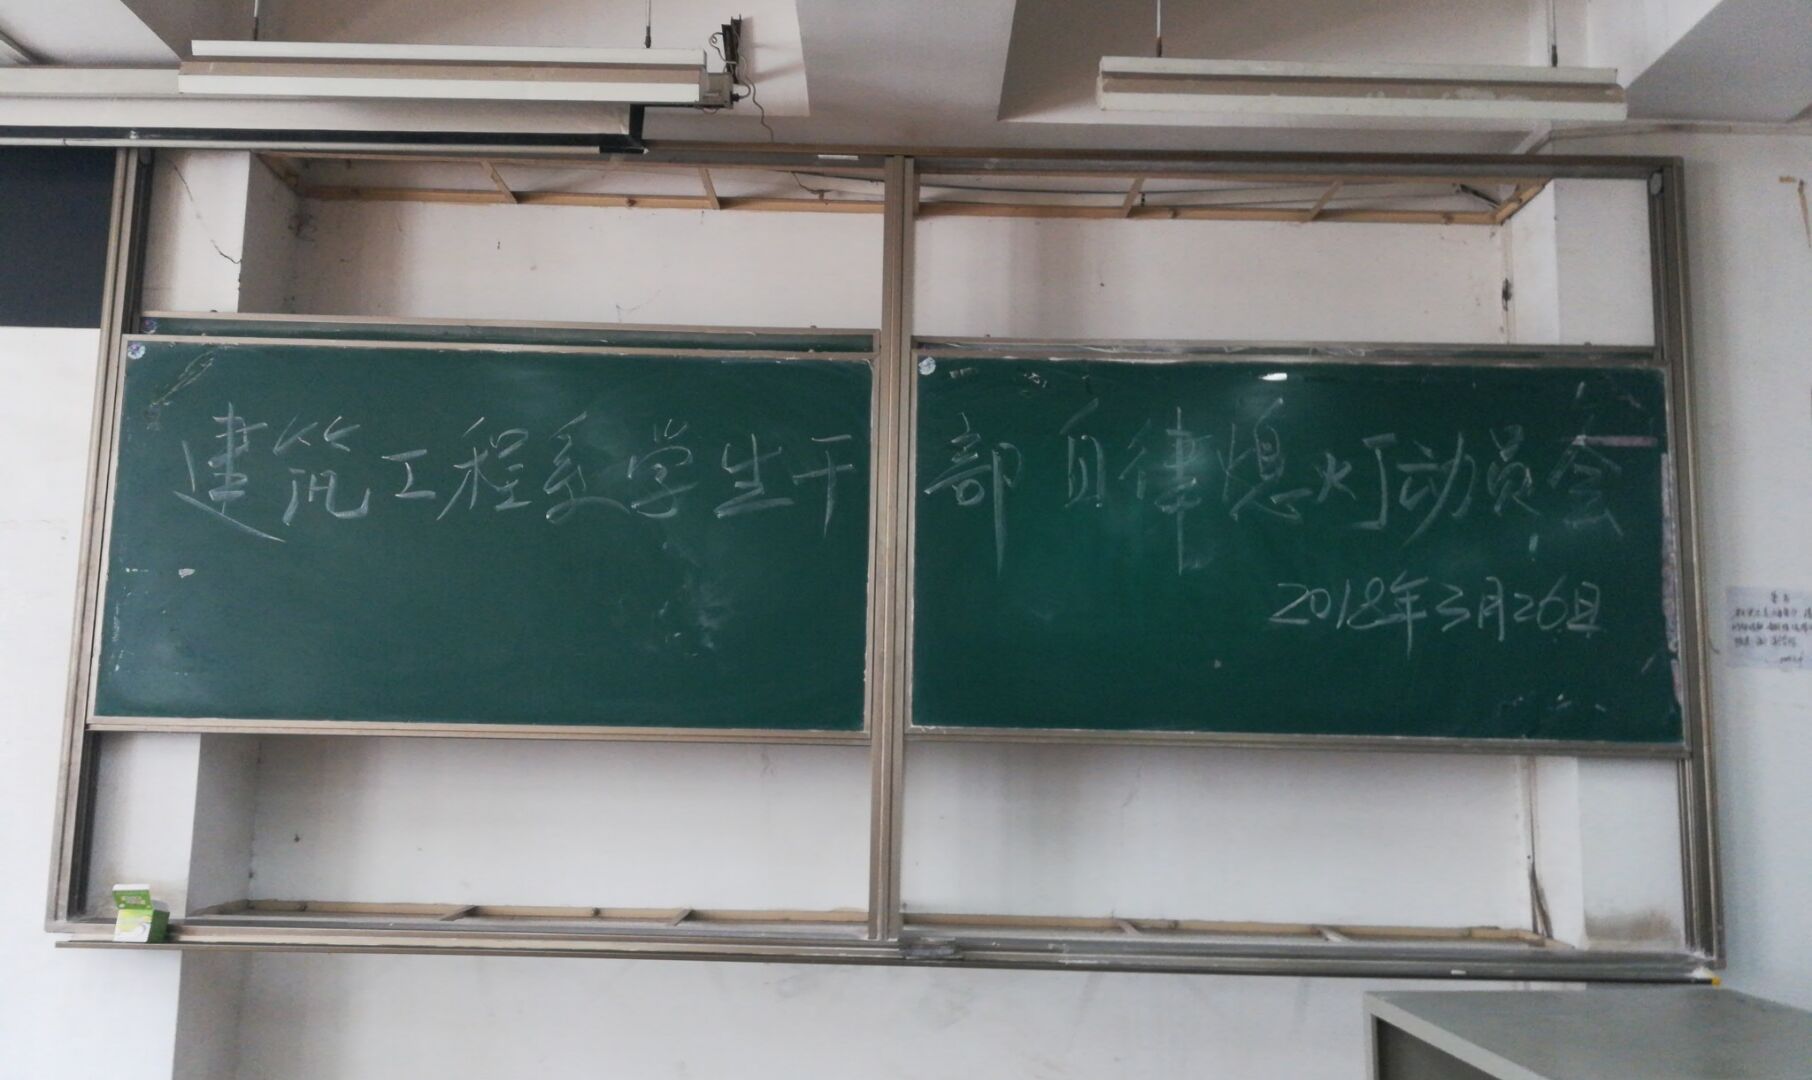 建筑工程系学生干部自律熄灯动员会
2018年3月26日